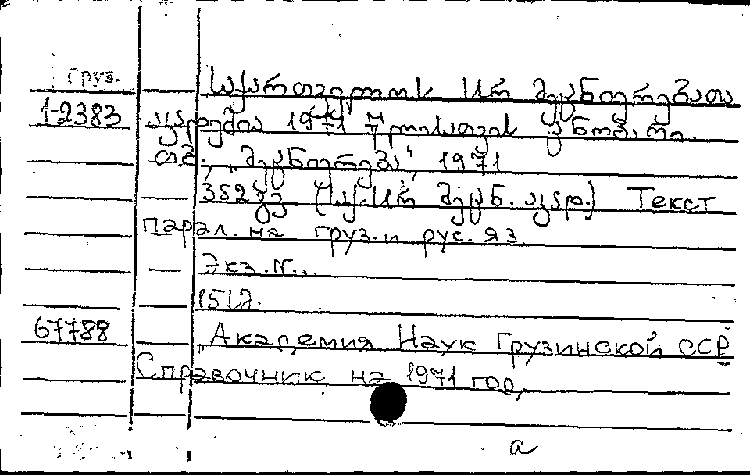 Груз.
საქართველოს სსრ მეცნიერებათა
1-2383 აკადემია 1971 წლისათვის ცნობარი.
თბ., „მეცნიერება“, 1971
352გვ (საქ.სსრ მეცნ. აკად.) Текст
парал. на груз. и рус. яз.
Экз. N...
151გ.
67788 Академия Наук Грузинской ССР
Справочник на 1971 год,
a